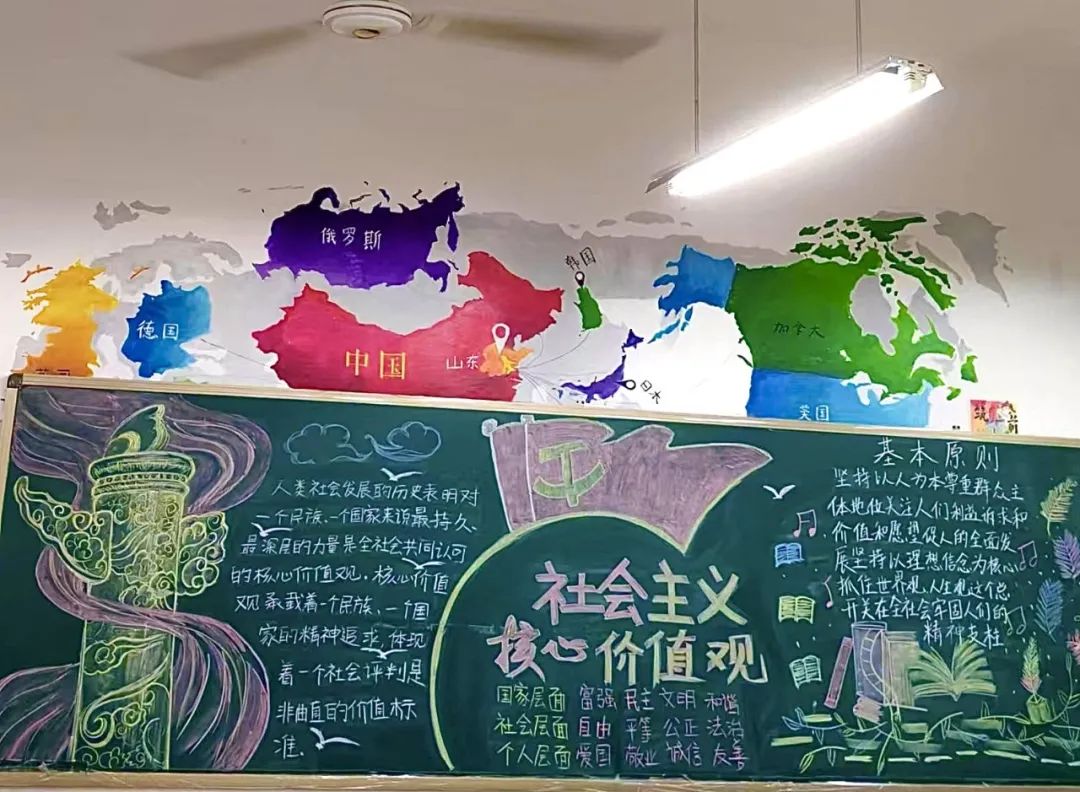 俄罗斯
韩国
德国
加拿大
中国
山东
日本
美国
人类社会发展的历史表明对
一个民族、一个国家来说最持久、
最深层的力量是全社会共同认可
的核心价值观,核心价值
观承载着一个民族、一个国
家的精神追求,体现
着一个社会评判是
非曲直的价值标
准.
社会主义
核心价值观
国家层面 富强 民主 文明 和谐
社会层面 自由 平等 公正 法治
个人层面 爱国 敬业 诚信 友善
基本原则
坚持以人为本尊重群众主
体地位关注人们利益诉求和
价值和愿望促人的全面发
展坚持以理想信念为核心
抓住世界观人生观这个总
开关在全社会牢固人们的
精神支柱